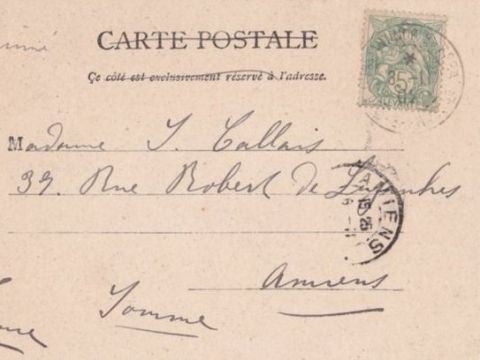 CARTE POSTALE
Ce côté est exclusivement réservé à l'adresse.
5
Madame J. Callais
39. Rue Robert de Luzarches
AMIENS
Amiens
Somme